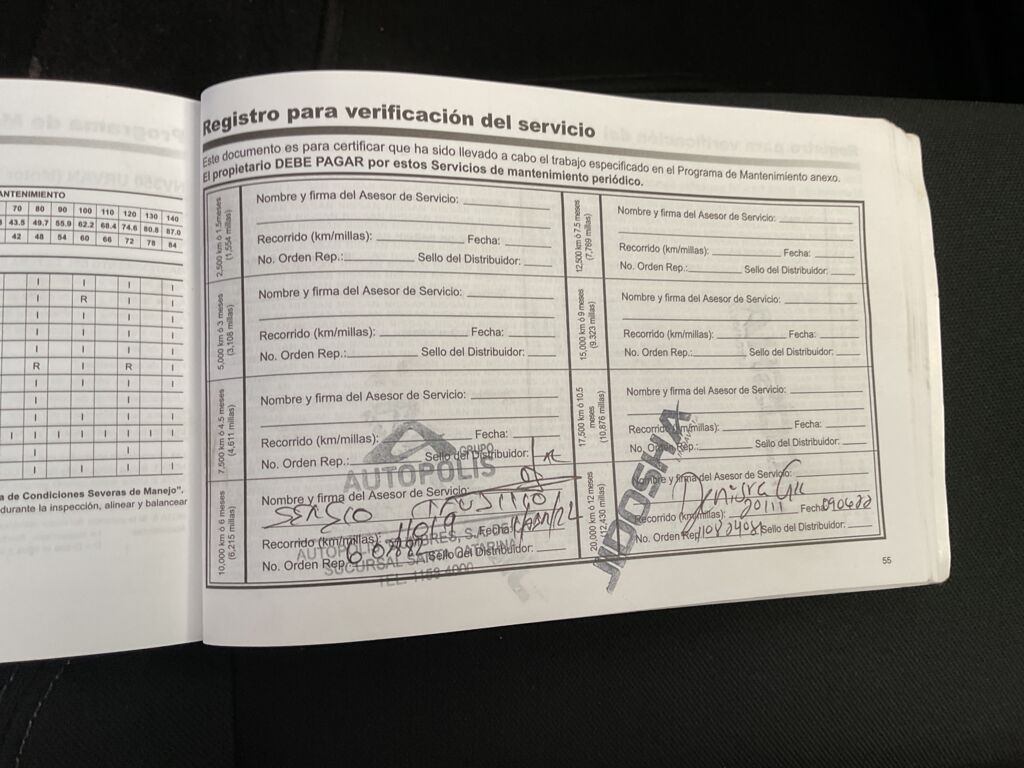 ANTENIMIENTO
70 80 90 100 110 120 130 140
43.5 49.7 55.9 62.2 68.4 74.6 80.8 87.0
42 48 54 60 66 72 78 84
I I I I
I R I I
I I I I
I I I I
I I I I
R I R I
I I I I
I I I I
I I I I
I I I I I I I I
I I I
I I I I
a de Condiciones Severas de Manejo",
durante la inspección, alinear y balancear
Registro para verificación del servicio
Este documento es para certificar que ha sido llevado a cabo el trabajo especificado en el Programa de Mantenimiento anexo.
El propietario DEBE PAGAR por estos Servicios de mantenimiento periódico.
2,500 km ó 1.5 meses
(1,554 millas)
Nombre y firma del Asesor de Servicio:
Recorrido (km/millas): Fecha:
No. Orden Rep.: Sello del Distribuidor:
5,000 km ó 3 meses
(3,108 millas)
Nombre y firma del Asesor de Servicio:
Recorrido (km/millas): Fecha:
No. Orden Rep.: Sello del Distribuidor:
7,500 km ó 4.5 meses
(4,611 millas)
Nombre y firma del Asesor de Servicio:
Recorrido (km/millas): Fecha:
No. Orden Rep.: Sello del Distribuidor:
GRUPO
AUTOPOLIS
10,000 km ó 6 meses
(6,215 millas)
Nombre y firma del Asesor de Servicio:
Recorrido (km/millas): Fecha:
No. Orden Rep. Sello del Distribuidor:
SUCURSAL SANTA CATARINA
TEL. 1158 4000
12,500 km ó 7.5 meses
(7,769 millas)
Nombre y firma del Asesor de Servicio:
Recorrido (km/millas): Fecha:
No. Orden Rep.: Sello del Distribuidor:
15,000 km ó 9 meses
(9,323 millas)
Nombre y firma del Asesor de Servicio:
Recorrido (km/millas): Fecha:
No. Orden Rep.: Sello del Distribuidor:
17,500 km ó 10.5
meses
(10,876 millas)
Nombre y firma del Asesor de Servicio:
Recorrido (km/millas): Fecha:
No. Orden Rep.: Sello del Distribuidor:
JIDOSHA
20,000 km ó 12 meses
(12,430 millas)
Nombre y firma del Asesor de Servicio:
Recorrido (km/millas): 20111 Fecha: 090622
No. Orden Rep. Sello del Distribuidor:
55